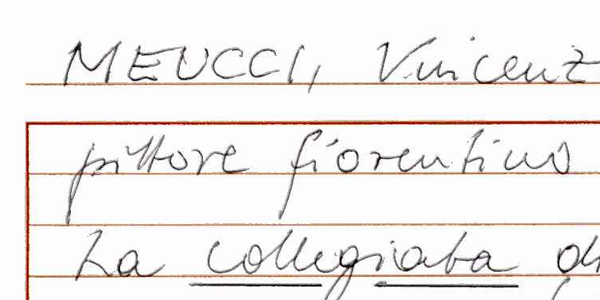 MEUCCI, Vincenz
pittore fiorentino
La collegiata di